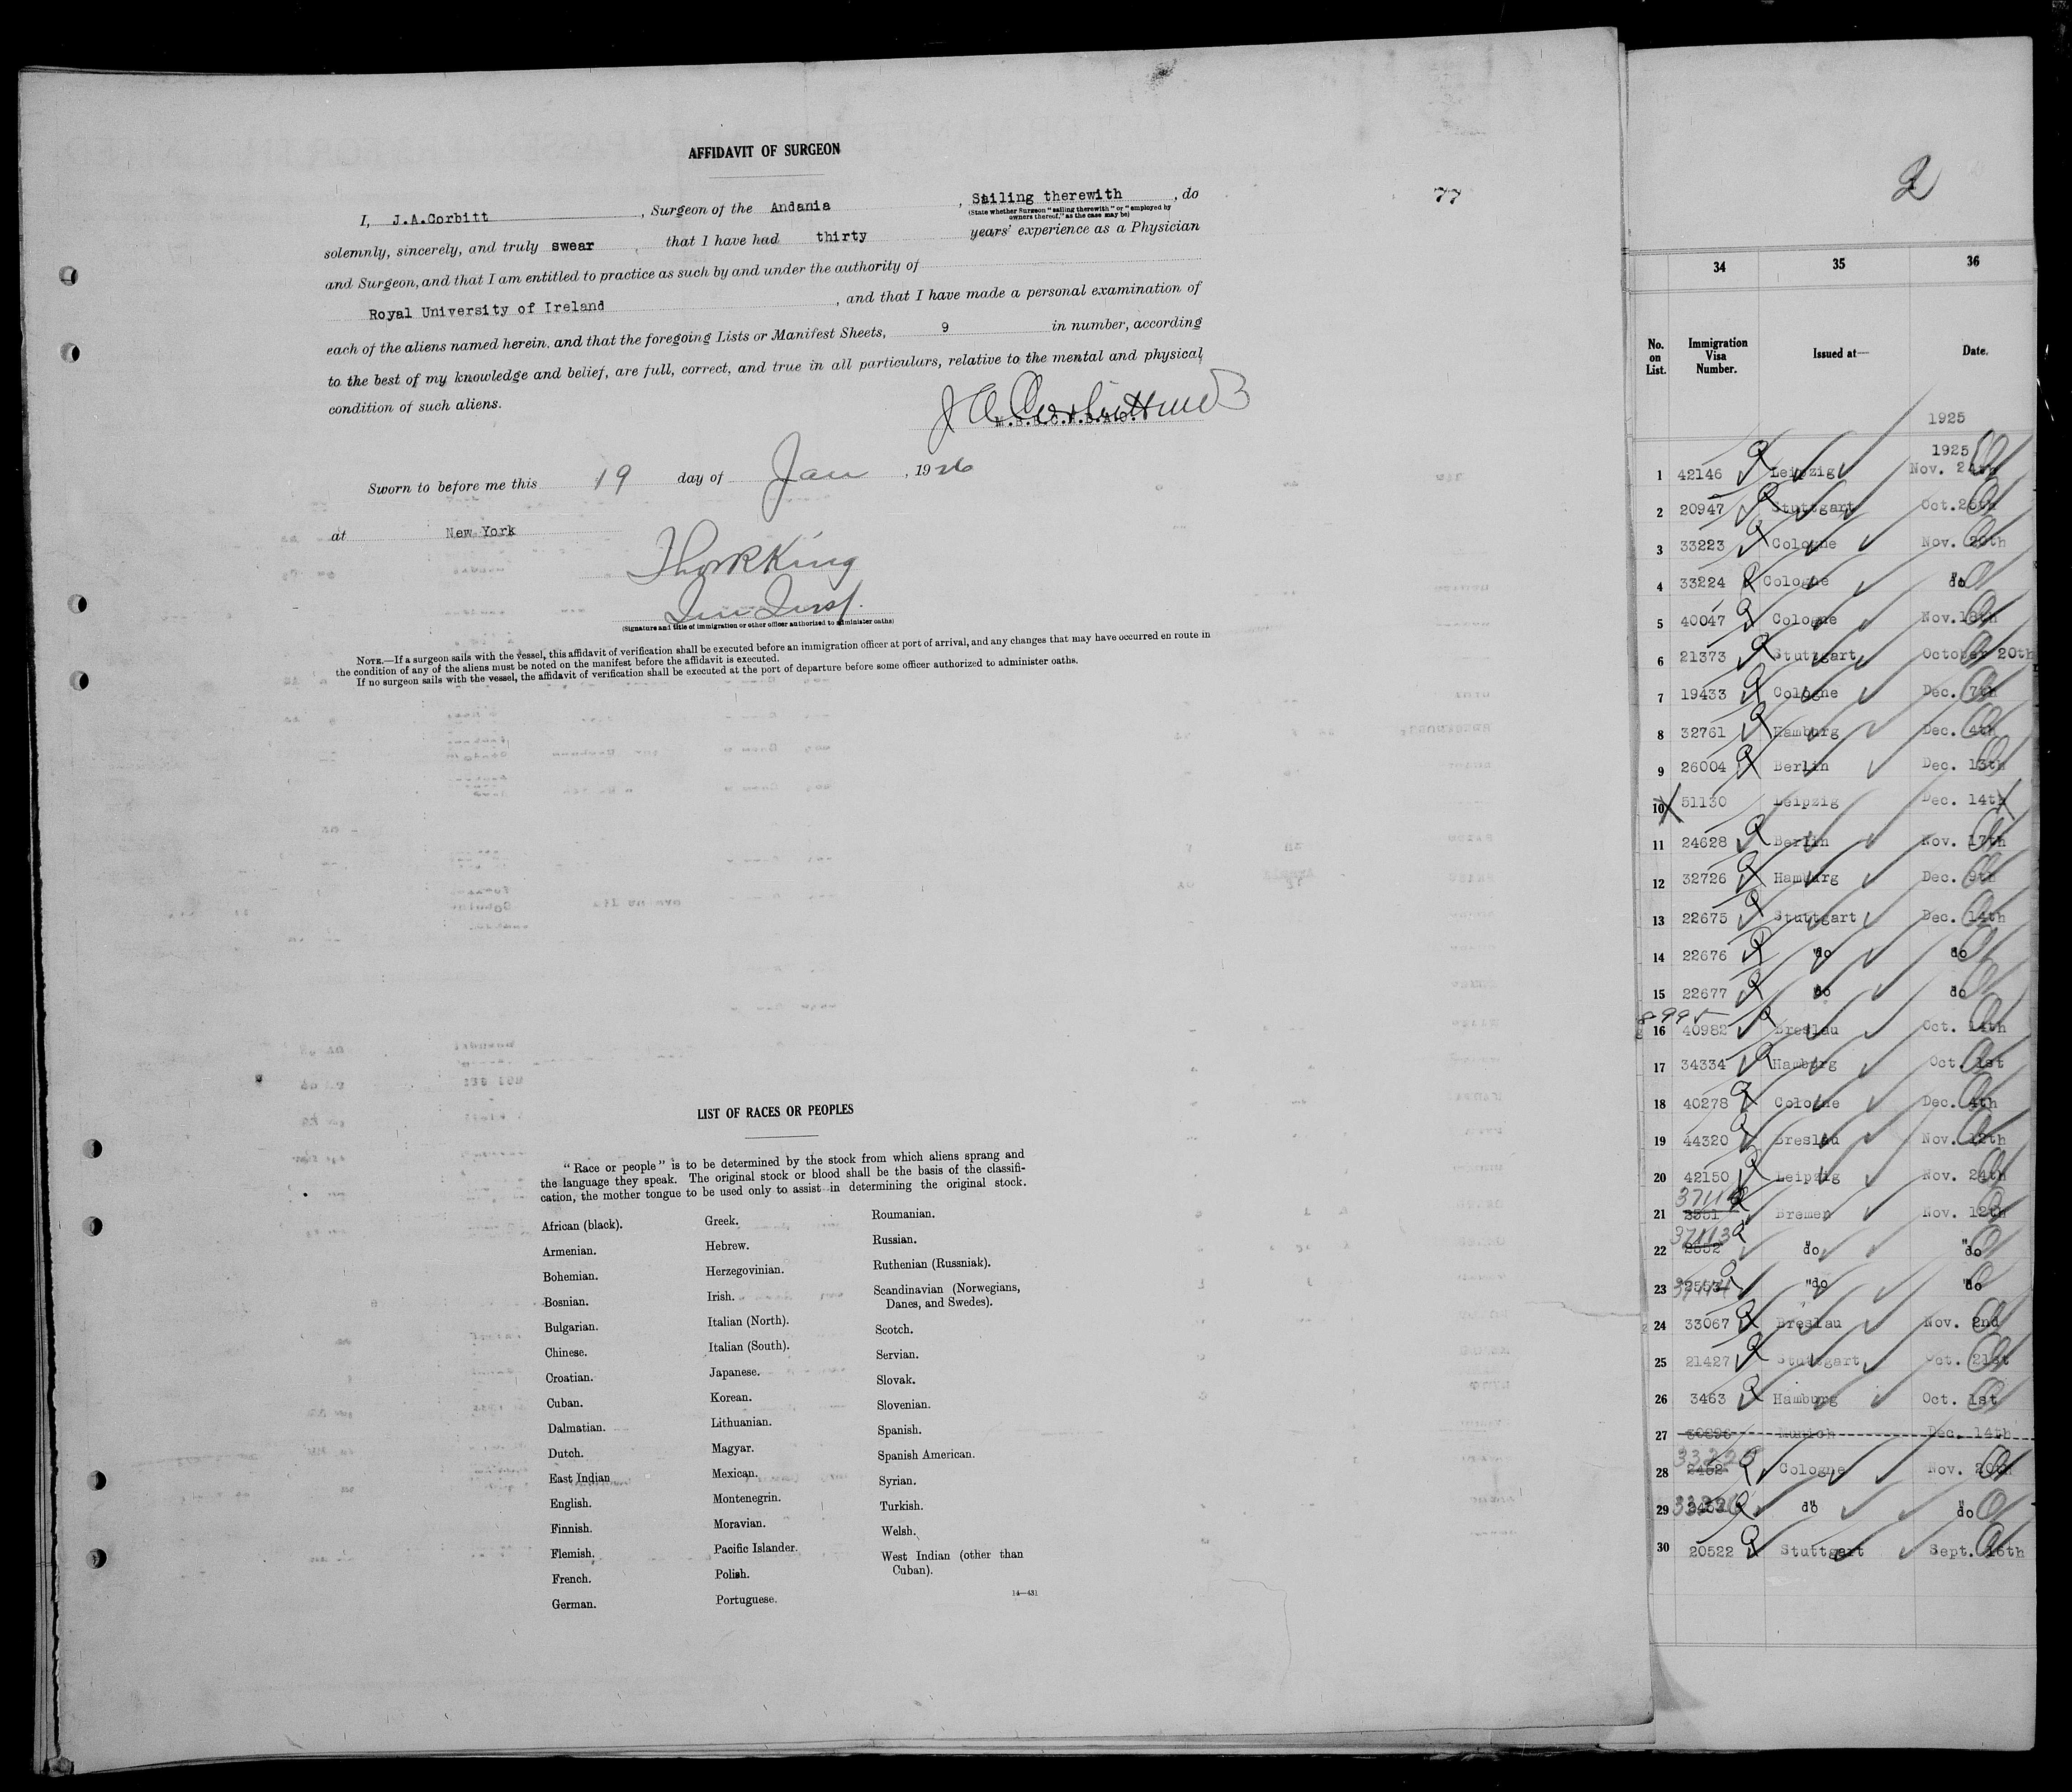 AFFIDAVIT OF SURGEON
77
I, J.A.Corbitt, Surgeon of the Andania, Sailing therewith, do
(State whether Surgeon "sailing therewith" or "employed by
owners thereof," as the case may be)
solemnly, sincerely, and truly swear, that I have had thirty years' experience as a Physician
and Surgeon, and that I am entitled to practice as such by and under the authority of
Royal University of Ireland, and that I have made a personal examination of
each of the aliens named herein, and that the foregoing Lists or Manifest Sheets, 9 in number, according
to the best of my knowledge and belief, are full, correct, and true in all particulars, relative to the mental and physical
condition of such aliens.
J A Corbitt
Sworn to before me this 19 day of Jan, 1926
at New York
Thos R King
(Signature and title of immigration or other officer authorized to administer oaths)
NOTE.—If a surgeon sails with the vessel, this affidavit of verification shall be executed before an immigration officer at port of arrival, and any changes that may have occurred en route in
the condition of any of the aliens must be noted on the manifest before the affidavit is executed.
If no surgeon sails with the vessel, the affidavit of verification shall be executed at the port of departure before some officer authorized to administer oaths.
LIST OF RACES OR PEOPLES
"Race or people" is to be determined by the stock from which aliens sprang and
the language they speak. The original stock or blood shall be the basis of the classifi-
cation, the mother tongue to be used only to assist in determining the original stock.
African (black).
Armenian.
Bohemian.
Bosnian.
Bulgarian.
Chinese.
Croatian.
Cuban.
Dalmatian.
Dutch.
East Indian
English.
Finnish.
Flemish.
French.
German.
Greek.
Hebrew.
Herzegovinian.
Irish.
Italian (North).
Italian (South).
Japanese.
Korean.
Lithuanian.
Magyar.
Mexican.
Montenegrin.
Moravian.
Pacific Islander.
Polish.
Portuguese.
Roumanian.
Russian.
Ruthenian (Russniak).
Scandinavian (Norwegians,
Danes, and Swedes).
Scotch.
Servian.
Slovak.
Slovenian.
Spanish.
Spanish American.
Syrian.
Turkish.
Welsh.
West Indian (other than
Cuban).
14—431
2
34 35 36
No. on List. Immigration Visa Number. Issued at— Date.
1925
1925
1 42146 Leipzig Nov. 24th
2 20947 Stuttgart Oct.26th
3 33223 Cologne Nov. 20th
4 33224 Cologne "do
5 40047 Cologne Nov.18th
6 21373 Stuttgart October 20th
7 19433 Cologne Dec. 7th
8 32761 Hamburg Dec. 4th
9 26004 Berlin Dec. 13th
10 51130 Leipzig Dec. 14th
11 24628 Berlin Nov. 17th
12 32726 Hamburg Dec. 9th
13 22675 Stuttgart Dec. 14th
14 22676 "do "do
15 22677 "do "do
16 40982 Breslau Oct. 14th
17 34334 Hamburg Oct. 1st
18 40278 Cologne Dec. 4th
19 44320 Breslau Nov. 12th
20 42150 Leipzig Nov. 24th
21 2551 Bremen Nov. 12th
37113
22 2552 "do "do
23 "do "do
24 33067 Breslau Nov. 2nd
25 21427 Stuttgart Oct. 21st
26 3463 Hamburg Oct. 1st
27 Munich Dec. 14th
28 2452 Cologne Nov. 20th
29 do" "do
30 20522 Stuttgart Sept. 16th